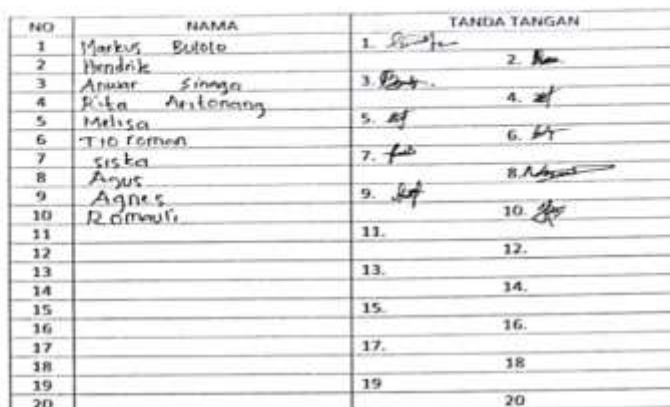 NO NAMA TANDA TANGAN
1 Markus Bulolo 1.
2 Hendrik 2.
3 Anwar Sinaga 3.
4 Rita Aritonang 4.
5 Melisa 5.
6 Tio roman 6.
7 siska 7.
8 Agus 8.
9 Agnes 9.
10 Romauli 10.
11 11.
12 12.
13 13.
14 14.
15 15.
16 16.
17 17.
18 18
19 19
20 20